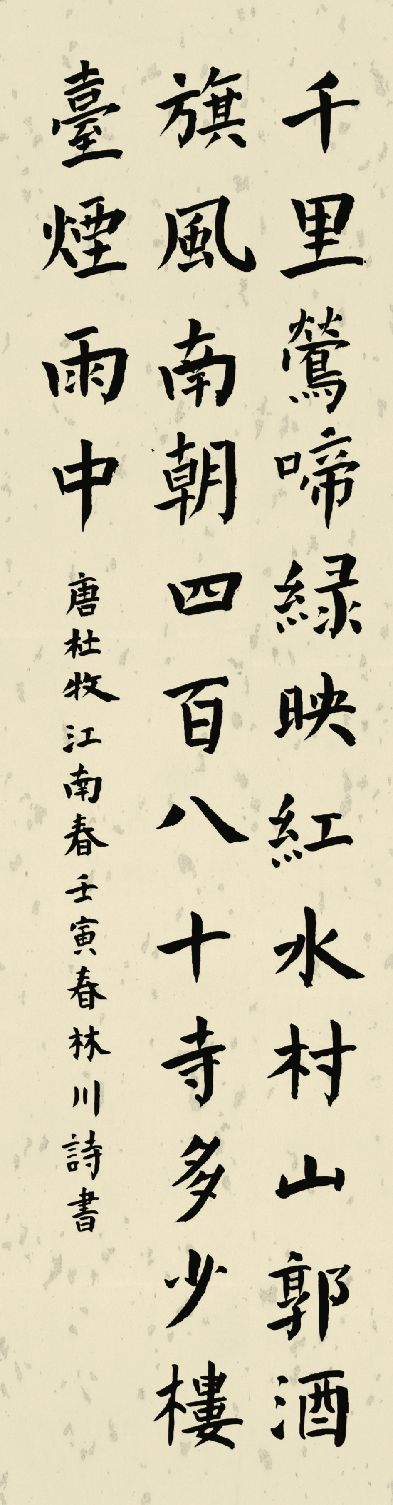 千里鶯啼緑映紅水村山郭酒
旗風南朝四百八十寺多少樓
臺煙雨中
唐杜牧江南春壬寅春林川詩書